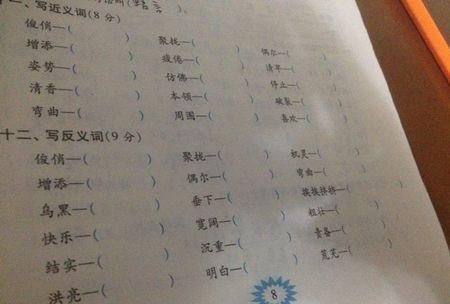 十一、写近义词(8分)
俊俏—( ) 聚拢—( ) 偶尔—( )
增添—( ) 疲倦—( ) 清早—( )
姿势—( ) 仿佛—( ) 停止—( )
清香—( ) 本领—( ) 破裂—( )
弯曲—( ) 周围—( ) 喜欢—( )
十二、写反义词(9分)
俊俏—( ) 聚拢—( ) 机灵—( )
增添—( ) 偶尔—( ) 弯曲—( )
乌黑—( ) 垂下—( ) 挨挨挤挤—( )
快乐—( ) 宽阔—( ) 粗壮—( )
结实—( ) 沉重—( ) 责备—( )
洪亮—( ) 明白—( ) 荒芜—( )
8